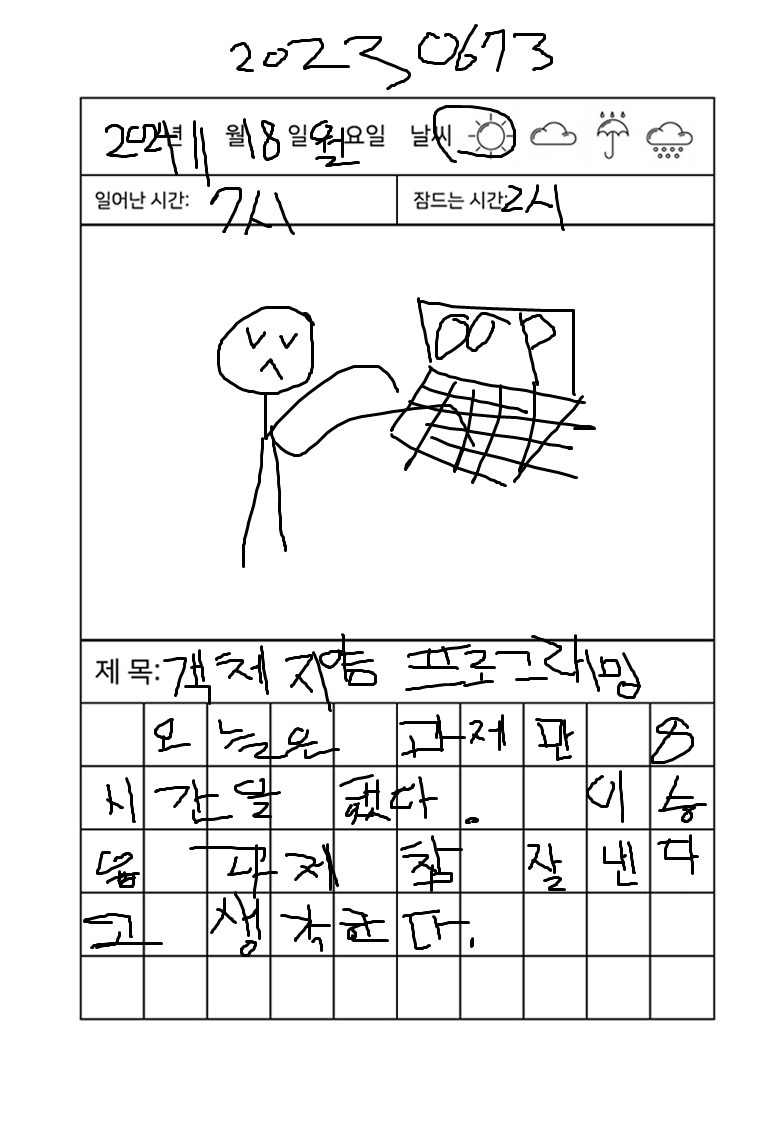 20230673
2024년 11월 18일 월요일 날씨
일어난 시간: 7시 잠드는 시간: 2시
OOP
제 목: 객체 지향 프로그래밍
오늘은 과제만 8
시간을 했다. 이승
엽 과제 참 잘 낸다
고 생각한다.